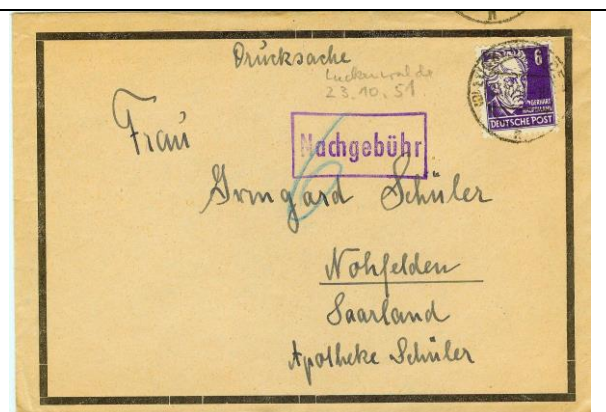 Drucksache
Luckenwalde
23.10.51
6
GERHART
HAUPTMANN
DEUTSCHE POST
Frau
Nachgebühr
6
Irmgard Schüler
Nohfelden
Saarland
Apotheke Schüler